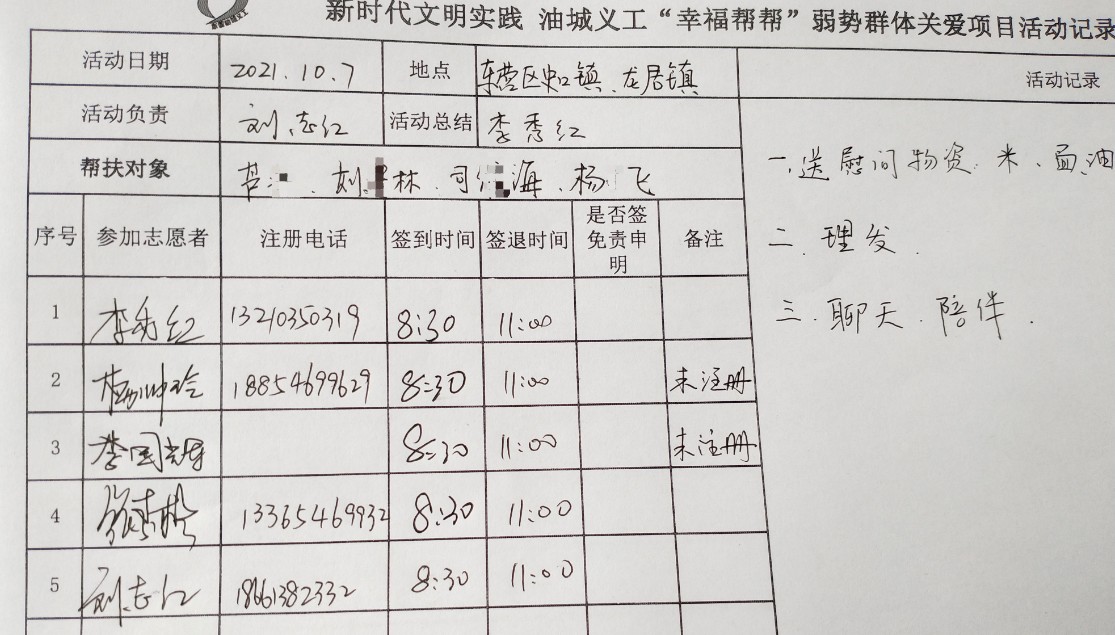 新时代文明实践 油城义工“幸福帮帮”弱势群体关爱项目活动记录
活动日期 2021.10.7 地点 龙居镇 活动记录
活动负责 刘志红 活动总结 李秀红
帮扶对象 刘 林、司 海、杨 飞
一、送慰问物资 米、面油
序号 参加志愿者 注册电话 签到时间 签退时间 是否签免责申明 备注
二、理发.
1 李秀红 13210350319 8:30 11:00
三、聊天、陪伴.
2 18854699629 8:30 11:00 未注册
3 8:30 11:00 未注册
4 13365469932 8:30 11:00
5 刘志红 18661382332 8:30 11:00